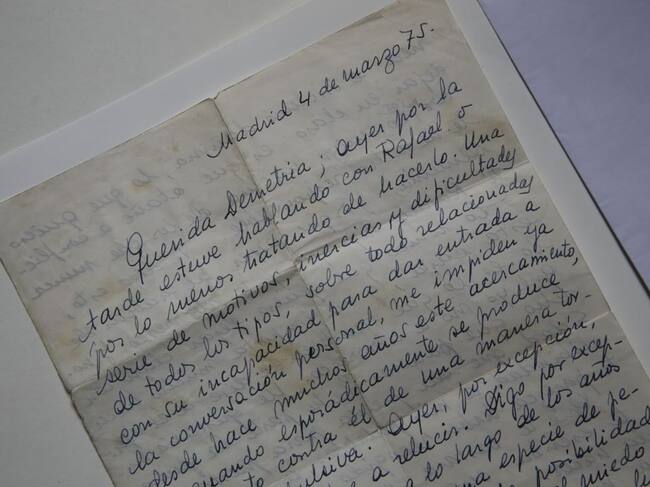 Madrid 4 de marzo 75.
Querida Demetria; ayer por la
tarde estuve hablando con Rafael o
por lo menos tratando de hacerlo. Una
serie de motivos, inercias y dificultades
de todos los tipos, sobre todo relacionadas
con su incapacidad para dar entrada a
la conversación personal, me impiden ya
desde hace muchos años este acercamiento,
cuando esporádicamente se produce,
contra él de una manera tor-
Ayer, por excepción,
a relucir. Digo por excep-
a lo largo de los años
una especie de pe-
posibilidad
el miedo